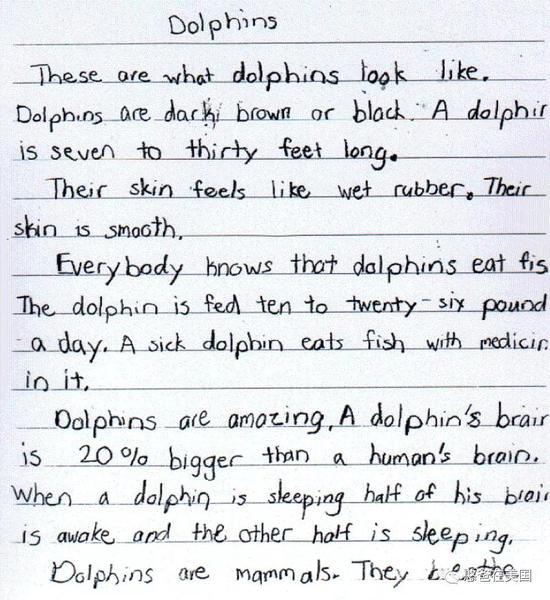 Dolphins
These are what dolphins look like.
Dolphins are dark brown or black. A dolphin
is seven to thirty feet long.
Their skin feels like wet rubber. Their
skin is smooth.
Everybody knows that dolphins eat fis
The dolphin is fed ten to twenty-six pound
a day. A sick dolphin eats fish with medicin
in it.
Dolphins are amazing. A dolphin's brain
is 20% bigger than a human's brain.
When a dolphin is sleeping half of his brain
is awake and the other half is sleeping.
Dolphins are mammals. They breathe
憨爸在美国